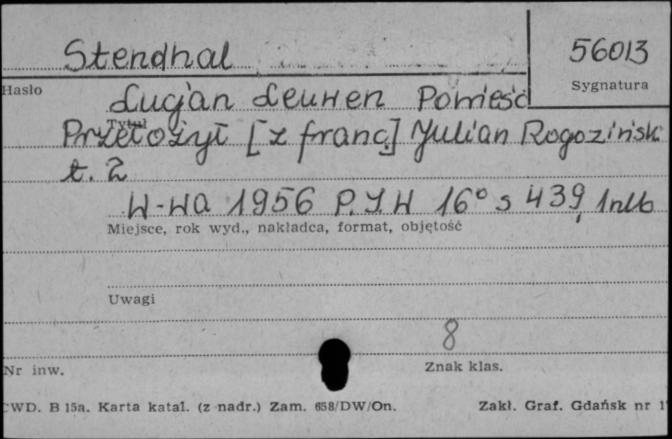 Stendhal 56013
Hasło Sygnatura
Lucjan Leuwen Powieść
Tytuł
Przełożył [z franc.] Julian Rogoziński
t. 2
W-wa 1956 P.I.W 16° s 439, 1nlb
Miejsce, rok wyd., nakładca, format, objętość
Uwagi
8
Nr inw. Znak klas.
CWD. B 15a. Karta katal. (z nadr.) Zam. 658/DW/On. Zakł. Graf. Gdańsk nr 1